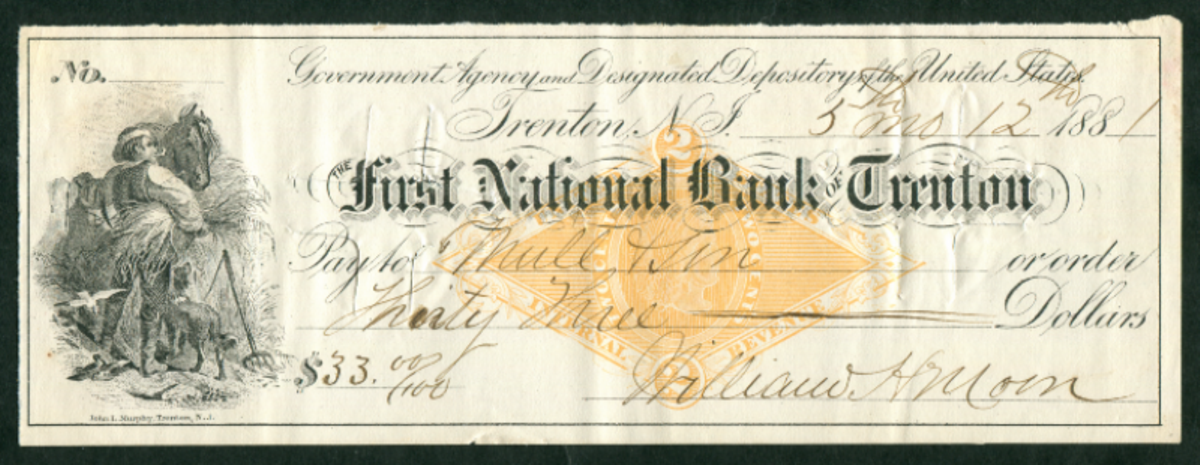 No.
Government Agency and Designated Depository of the United States.
Trenton, N.J. 5th mo 12th 1881
THE First National Bank OF Trenton
Pay to Mull & Son or order
Thirty Three Dollars
$33.00/100
2
INTERNAL REVENUE
2
William H Moon
John L. Murphy, Trenton, N.J.